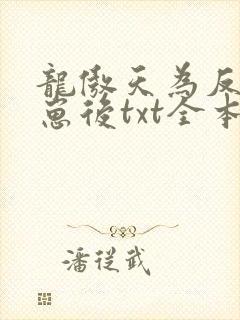 龍傲天為反
崽後txt全本
潘從武